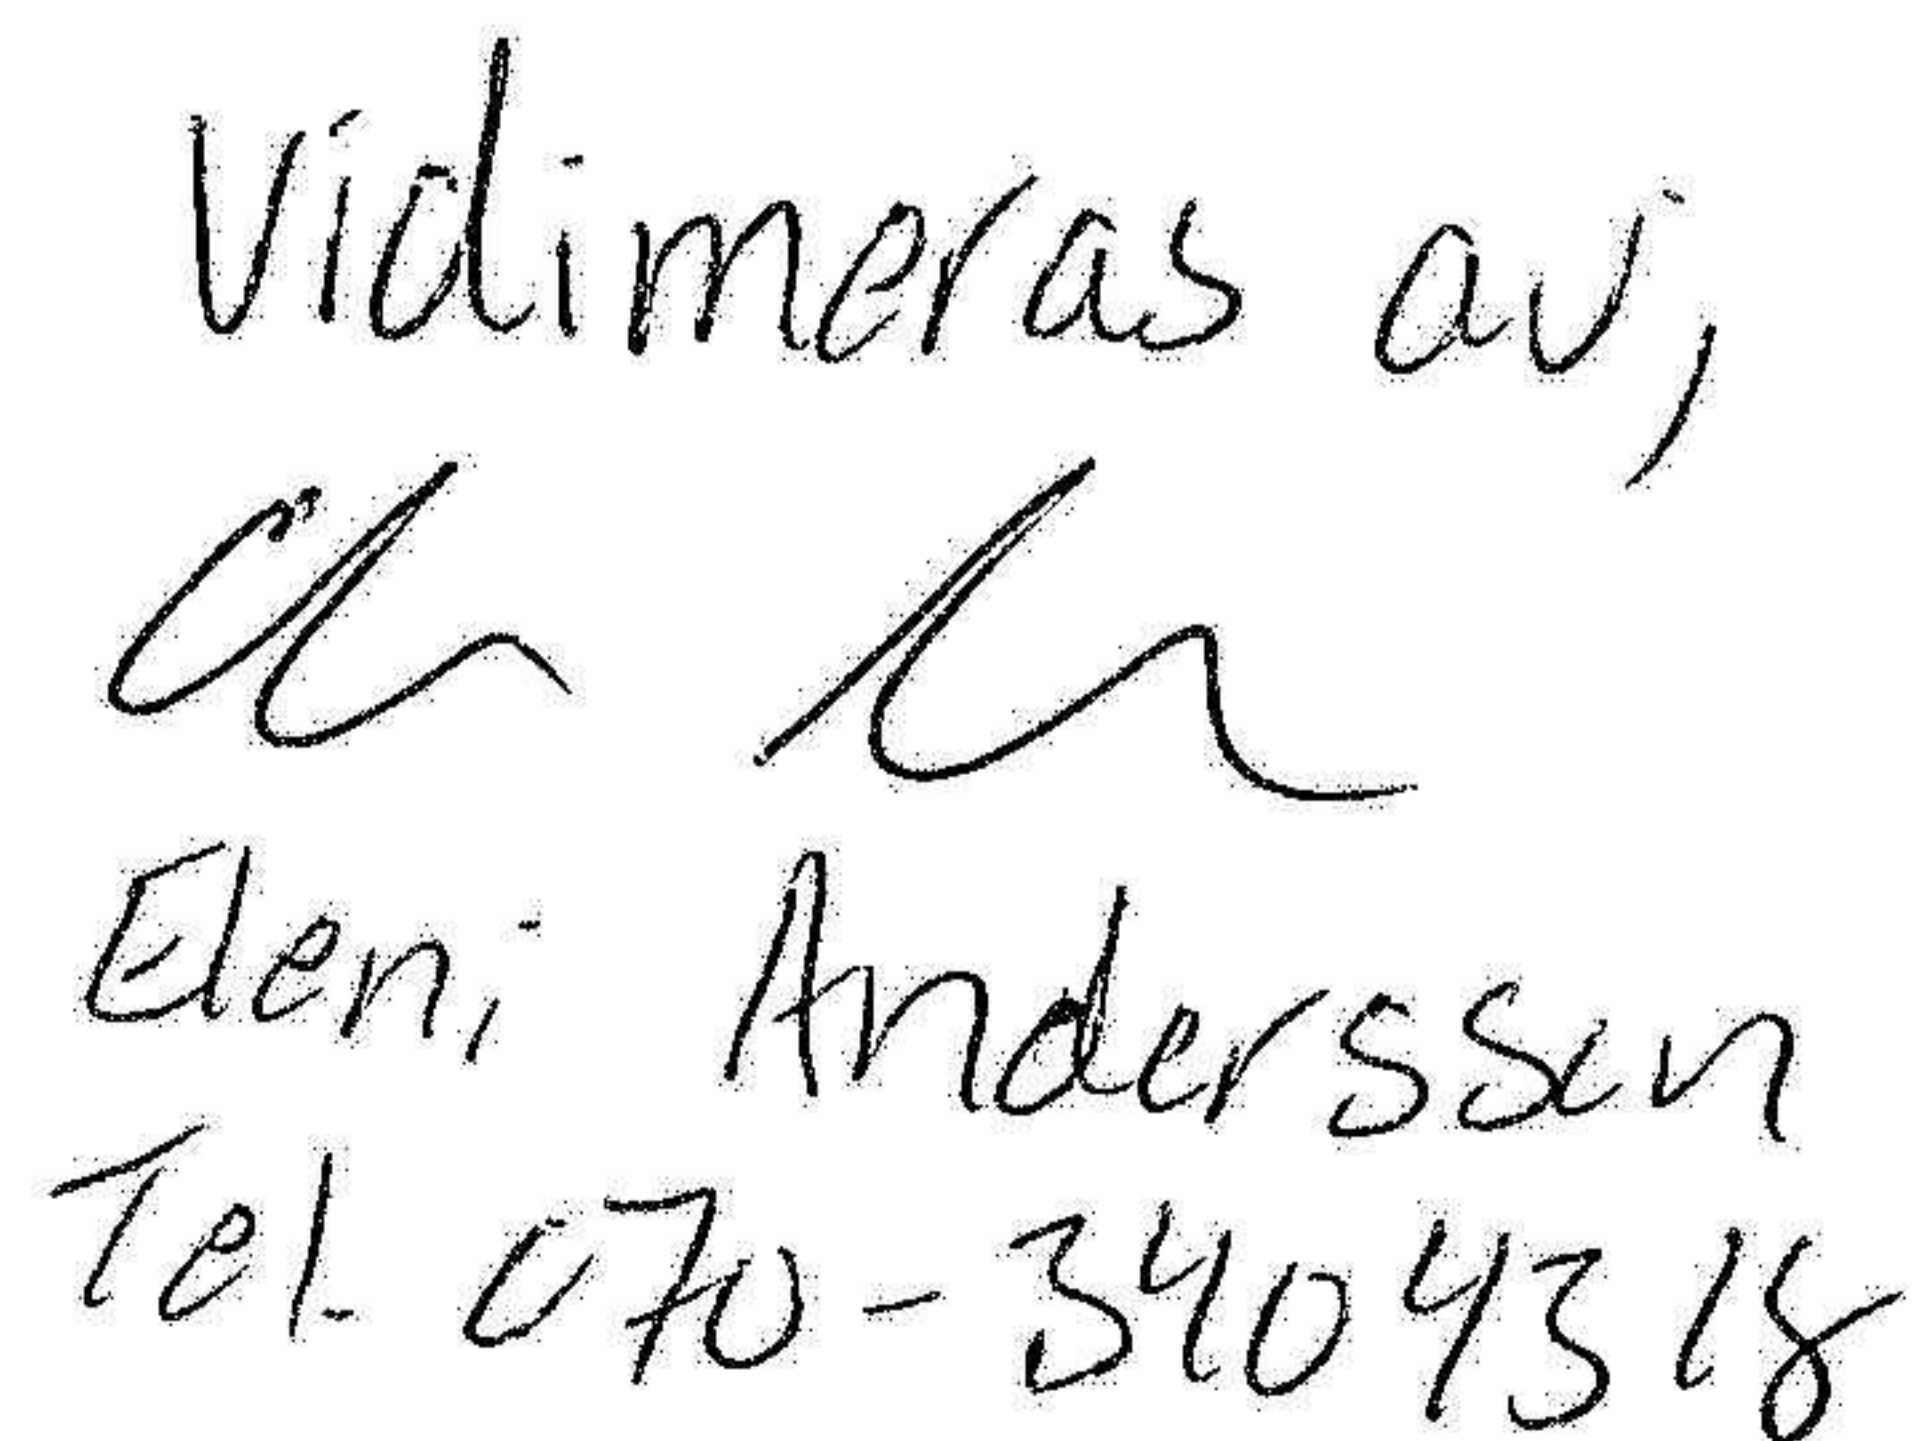 Vidimeras av,
Eleni Andersson
Tel. 070-340 43 18